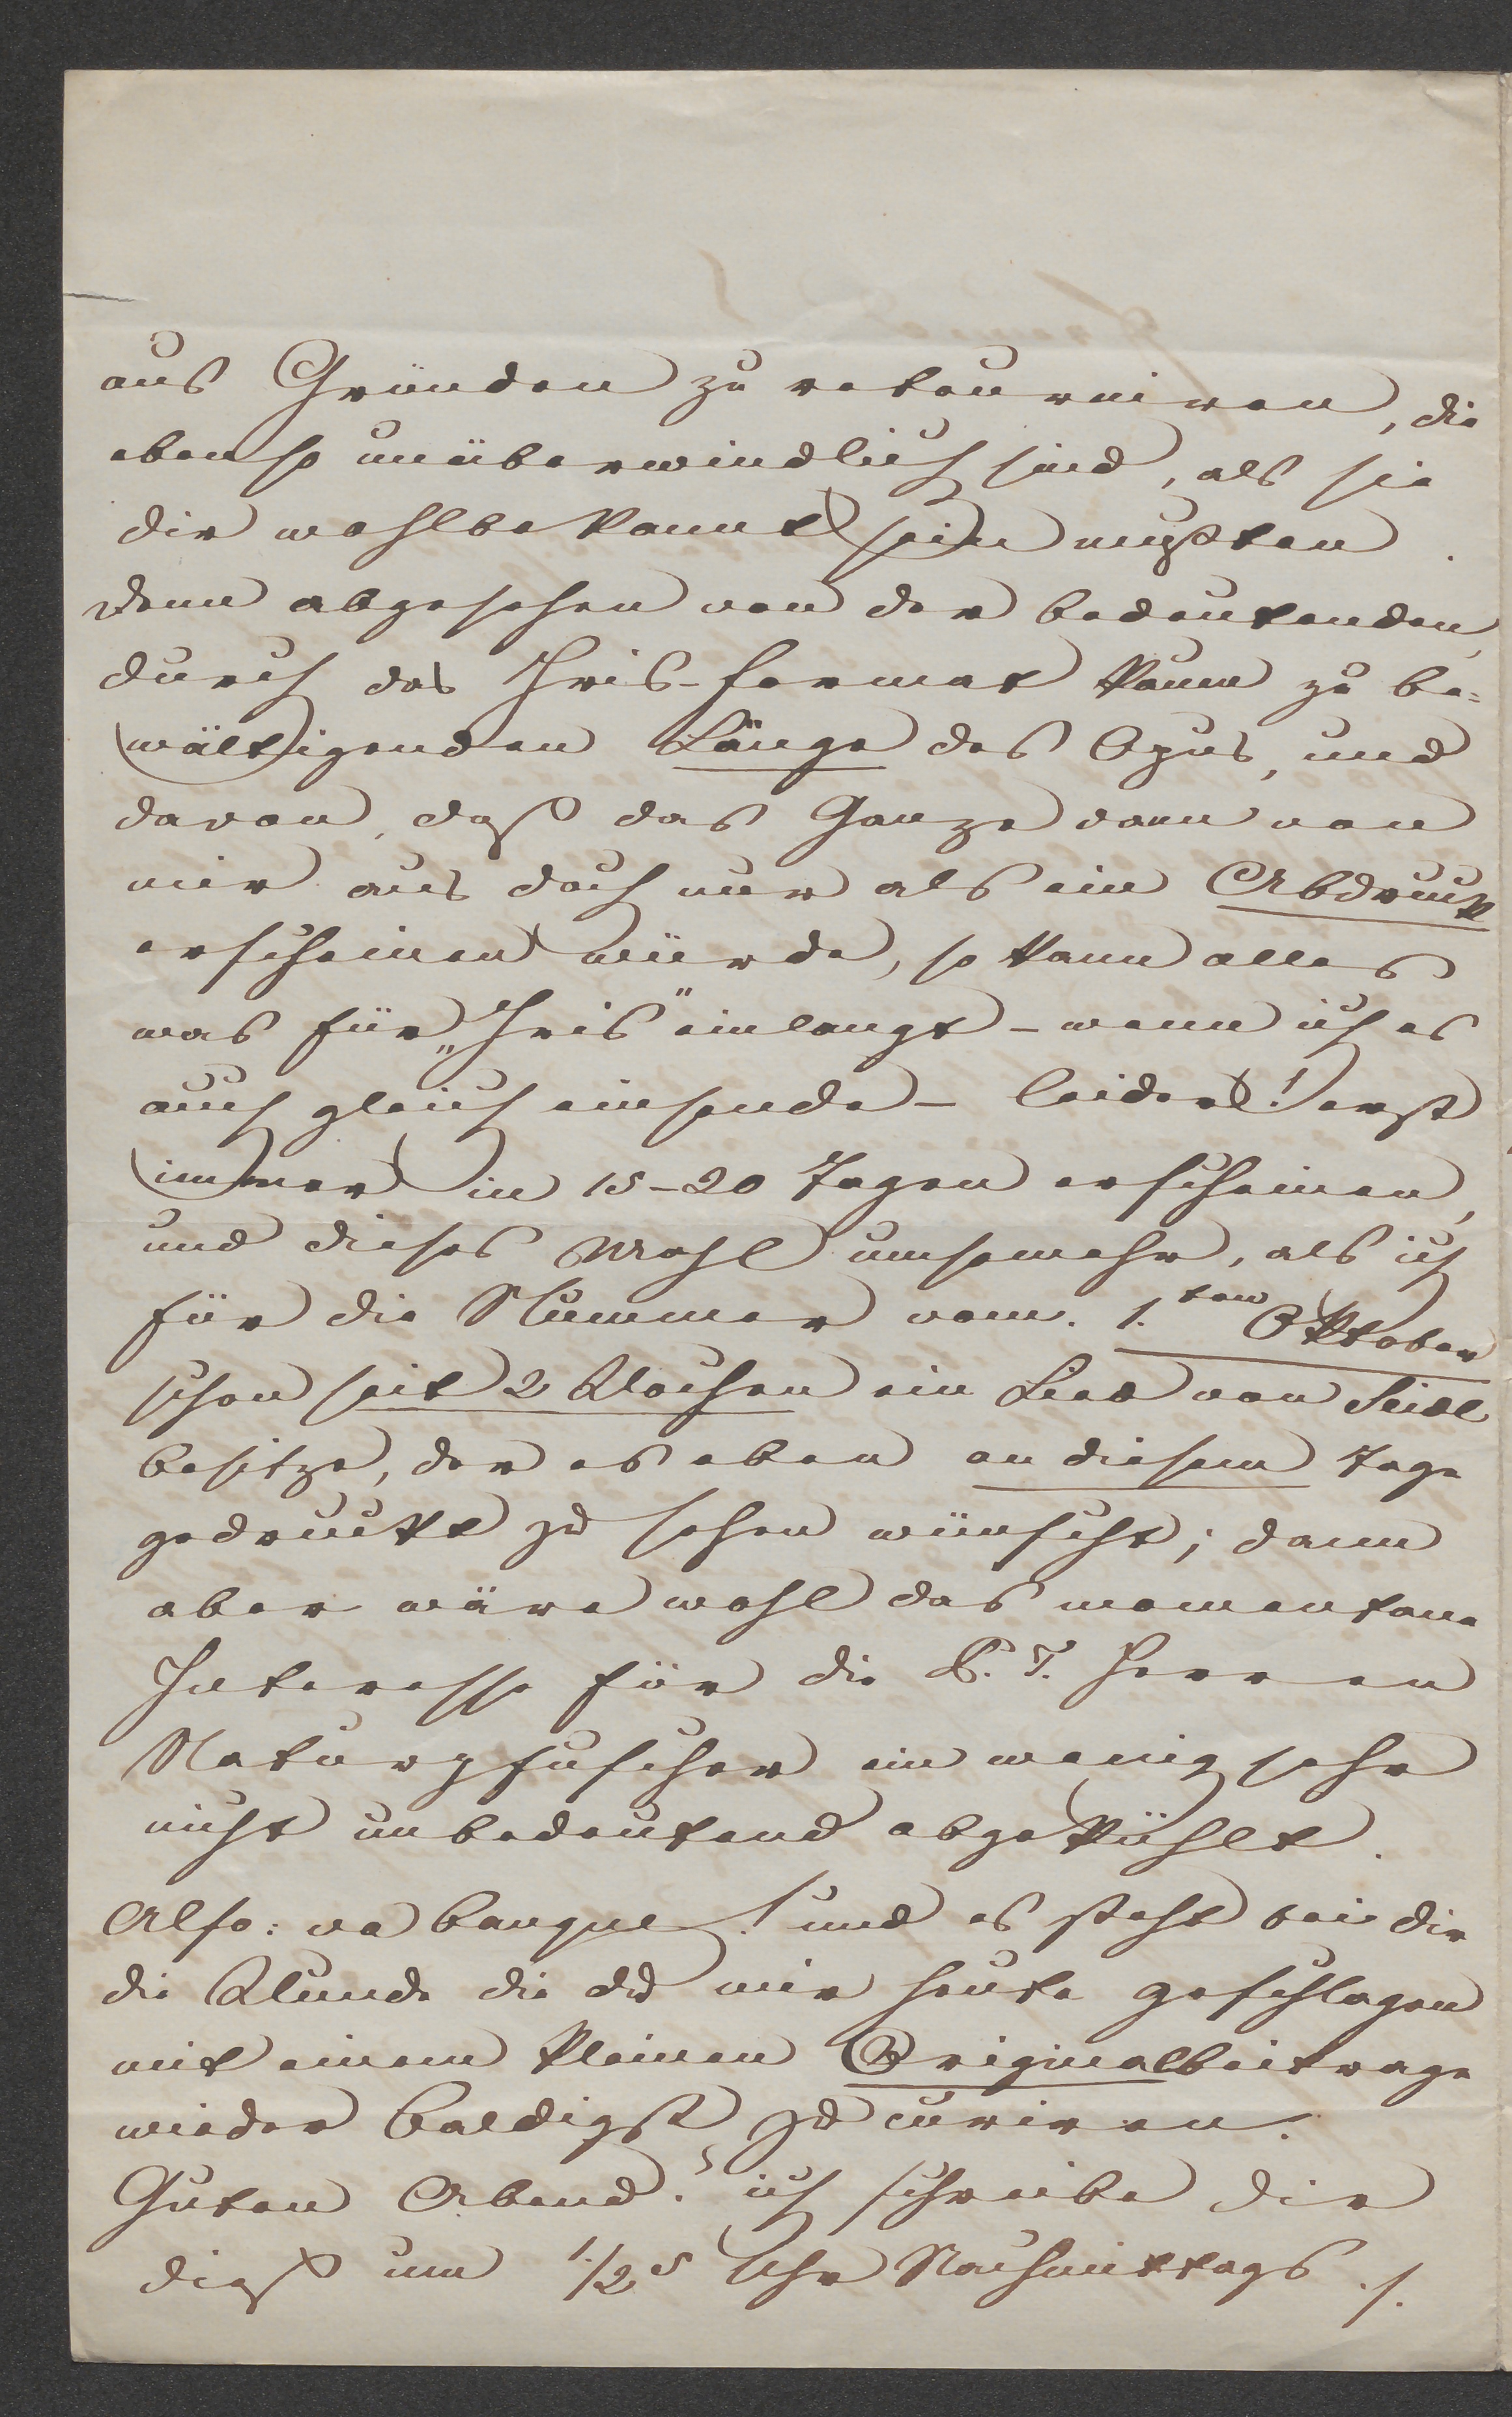 aus Gründen zu retourniren, die
ebenso unüberwindlich sind, als sie
dir wohlbekannt sein mußten.
Denn abgesehen von der bedeutenden,
durch das Iris-Format kaum zu be=
wältigenden Länge des Opus, und
davon, daß das Ganze dann von
mir aus doch nur als ein Abdruck
erscheinen würde, so kann alles
was für „Iris" einlangt – wenn ich es
auch gleich einsende – leider! erst
immer in 15–20 Tagen erscheinen,
und dieses Mahl umsomehr, als ich
für die Nummer vom 1.ten Oktober
schon seit 2 Wochen ein Lied von Seidl
besitze, der es eben an diesem Tage
gedruckt zu sehen wünscht; dann
aber wäre wohl das momentane
Interesse für die P. T. Herren
Naturpfuscher ein wenig sehr
nicht unbedeutend abgekühlt.
Also: va banque! und es steht bei dir
die Wunde die du mir heute geschlagen
mit einem kleinen Originalbeitrage
wieder baldigst zu curiren.
Guten Abend! ich schreibe dir
dieß um 1/2 5 Uhr Nachmittags ./.